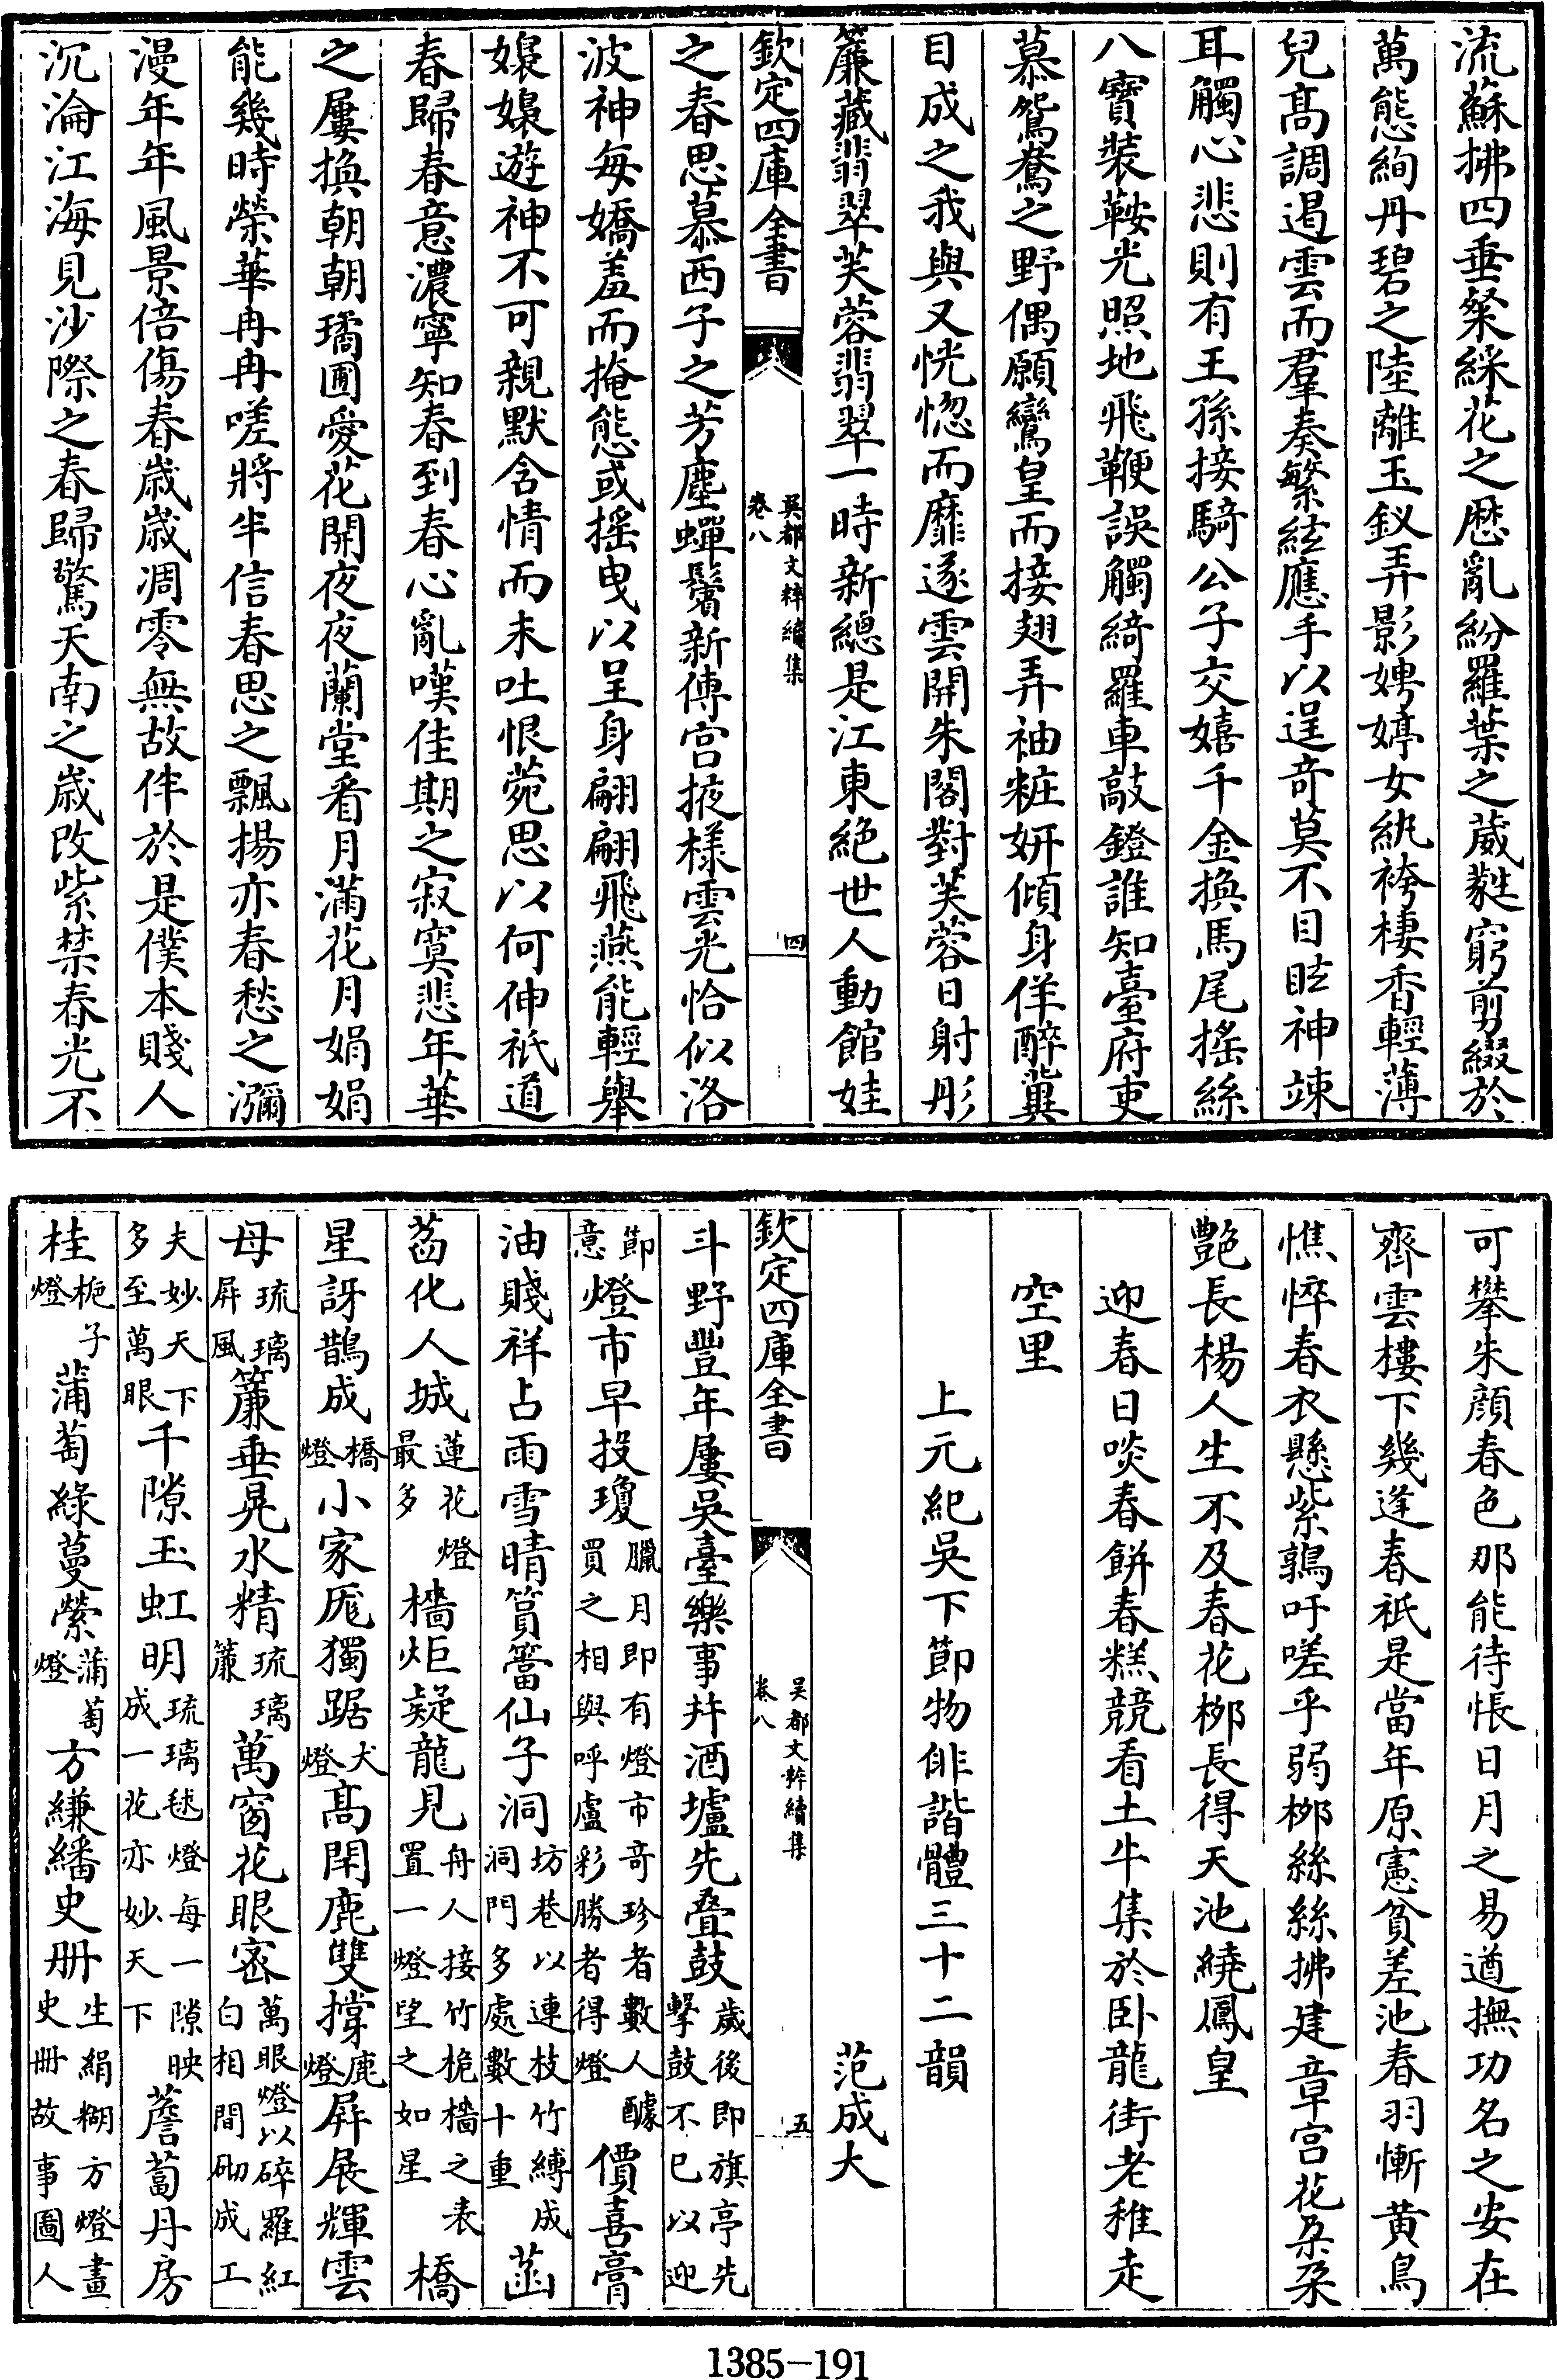 流蘇拂四垂粲綵花之厯亂紛羅葉之葳蕤窮剪綴於
萬態絢丹碧之陸離玉釵弄影娉婷女紈袴棲香輕薄
兒髙調遏雲而羣奏繁絃應手以逞竒莫不目眩神竦
耳觸心悲則有王孫接騎公子交嬉千金換馬尾揺絲
八寶裝鞍光照地飛鞭誤觸綺羅車敲鐙誰知臺府吏
慕鴛鴦之野偶願鸞皇而接翅弄袖粧妍傾身佯醉冀
目成之我與又恍惚而靡遂雲開朱閣對芙蓉日射彤
簾藏翡翠芙蓉翡翠一時新總是江東絶世人動館娃
欽定四庫全書
吳都文粹續集
卷八
四
之春思慕西子之芳塵蟬鬢新傳宫掖様雲光恰似洛
波神毎嬌羞而掩態或揺曳以呈身翩翩飛燕能輕舉
嬝嬝遊神不可親默含情而未吐恨菀思以何伸祇道
春歸春意濃寧知春到春心亂嘆佳期之寂寞悲年華
之屢換朝朝璚圃愛花開夜夜蘭堂看月滿花月娟娟
能幾時榮華冉冉嗟將半信春思之飄揚亦春愁之瀰
漫年年風景倍傷春嵗嵗凋零無故伴於是僕本賤人
沉淪江海見沙際之春歸驚天南之嵗改紫禁春光不
可攀朱顔春色那能待悵日月之易遒撫功名之安在
齊雲樓下幾逢春祇是當年原憲貧差池春羽慚黄鳥
憔悴春衣懸紫鶉吁嗟乎弱栁絲絲拂建章宫花朶朶
艷長楊人生不及春花栁長得天池繞鳳皇
迎春日啖春餅春糕競看土牛集於卧龍街老稚走
空里
上元紀吳下節物俳諧體三十二韻
范成大
欽定四庫全書
吳都文粹續集
卷八
五
斗野豐年屢吳臺樂事并酒壚先叠鼓歳後即旗亭先擊鼓不已以迎
節意燈市早投瓊臘月即有燈市竒珍者數人醵買之相與呼盧彩勝者得燈價喜膏
油賤祥占雨雪晴篔簹仙子洞坊巷以連枝竹縛成洞門多處數十重菡
萏化人城蓮花燈最多檣炬疑龍見舟人接竹桅檣之表置一燈望之如星橋
星訝鵲成橋燈小家厖獨踞犬燈髙閈鹿雙撑鹿燈屏展輝雲
母琉璃屏風簾垂晃水精琉璃簾萬窗花眼密萬眼燈以碎羅紅白相間砌成工
夫妙天下多至萬眼千隙玉虹明琉璃毬燈每一隙映成一花亦妙天下薝蔔丹房
桂梔子燈蒲萄綠蔓縈蒲萄燈方縑繙史册生絹糊方燈畫史冊故事圖人
1385-191